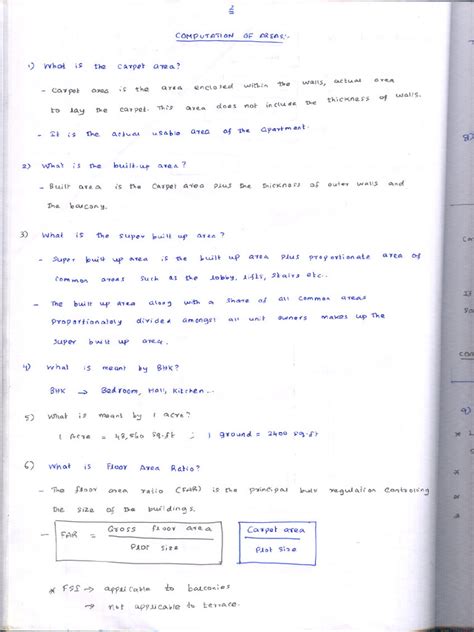 2
COMPUTATION OF AREAS:-
1) What is the carpet area?
- Carpet area is the area enclosed within the walls, actual area
to lay the carpet. This area does not include the thickness of walls.
- It is the actual usable area of the apartment.
2) What is the built-up area?
- Built area is the carpet area plus the thickness of outer walls and
the balcony.
3) What is the super built up area?
- Super built up area is the built up area plus proportionate area of
common areas such as the lobby, lifts, stairs etc..
- The built up area along with a share of all common areas
proportionately divided amongst all unit owners makes up the
super built up area.
4) What is meant by BHK?
BHK → Bedroom, Hall, Kitchen...
5) What is meant by 1 acre?
1 Acre = 43,560 sq.ft ; 1 ground = 2400 sq.ft
6) What is Floor Area Ratio?
- The floor area ratio (FAR) is the principal bulk regulation controlling
the size of the buildings.
- FAR = Gross floor area / Plot size
Carpet area / Plot size
* FSI → applicable to balconies
→ not applicable to terrace.
8)
Ca
If
Com
9)
*
*
*